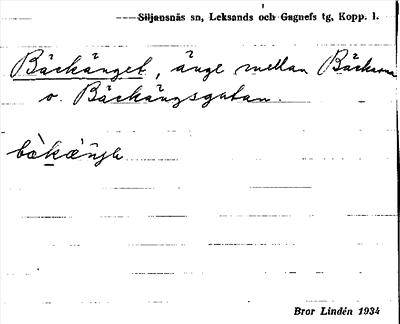 Siljansnäs sn, Leksands och Gagnefs tg, Kopp. l.
Bäckänget, änge mellan Bäckarna
o. Bäckängsgatan.
Bror Lindén 1934